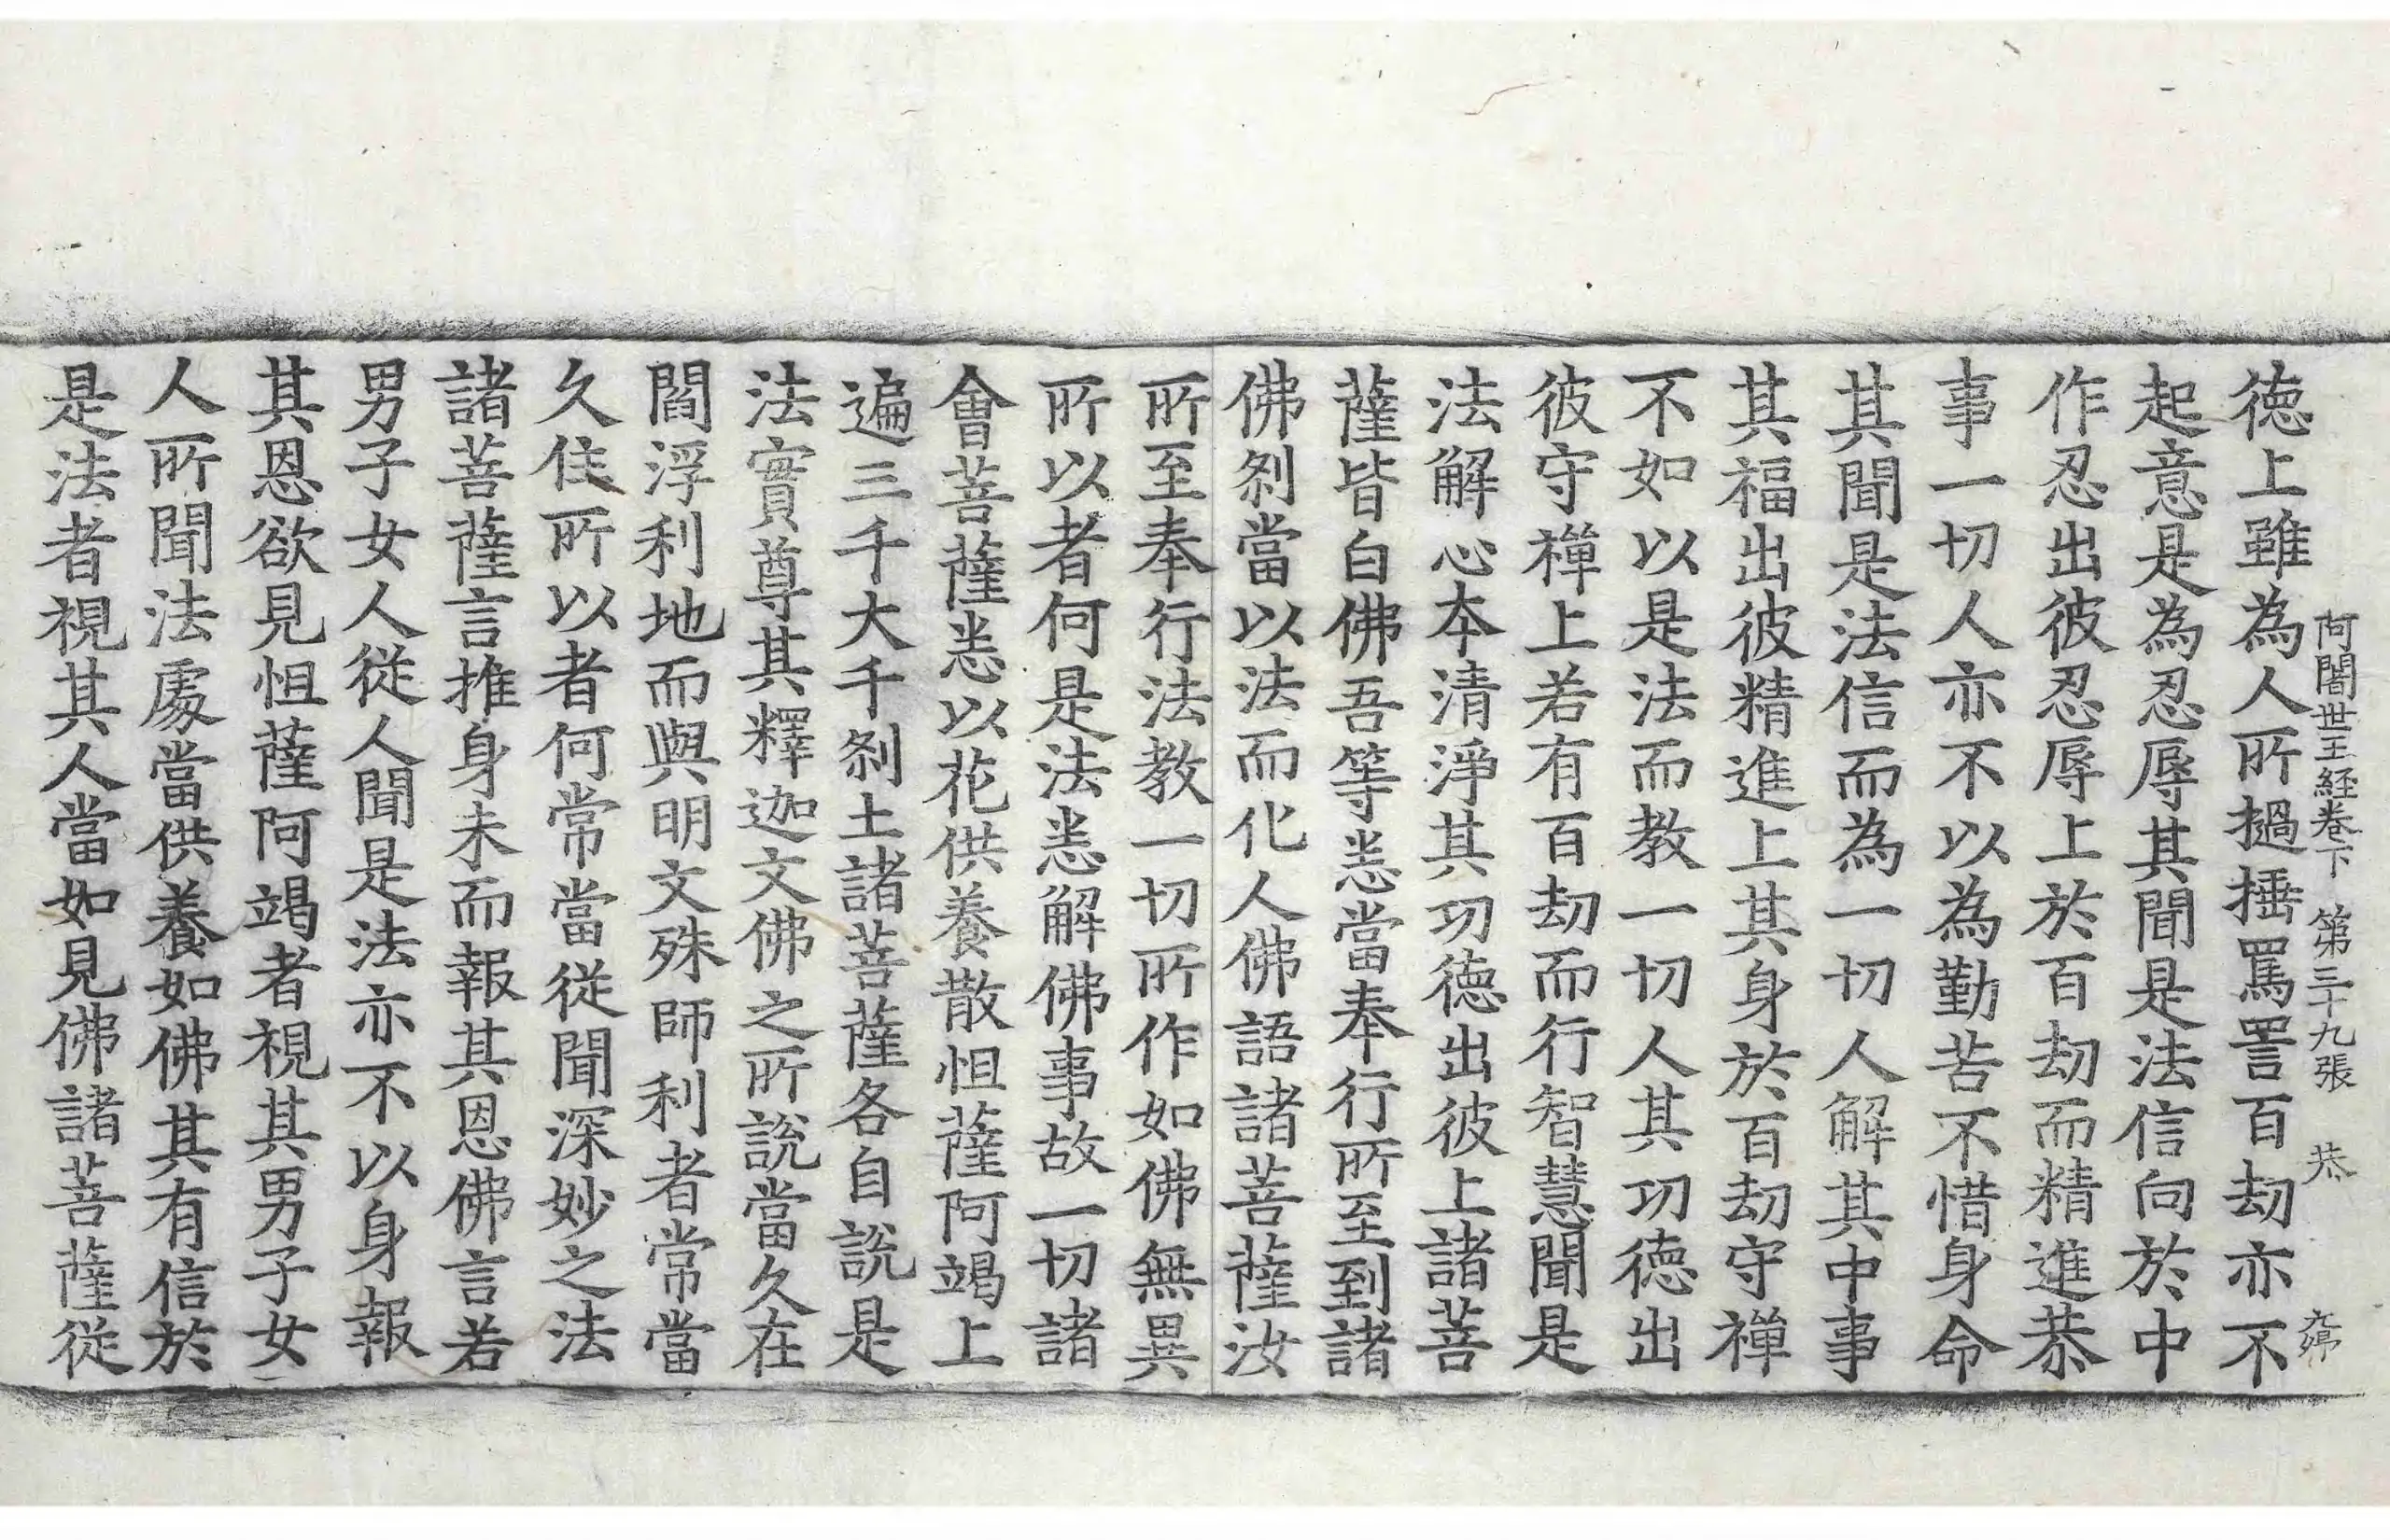 阿闍世王経卷下　第三十九張　恭
德上雖為人所撾捶罵詈百劫亦不
起意是為忍辱其聞是法信向於中
作忍出彼忍辱上於百劫而精進恭
事一切人亦不以為勤苦不惜身命
其聞是法信而為一切人解其中事
其福出彼精進上其身於百劫守禪
不如以是法而教一切人其功德出
彼守禪上若有百劫而行智慧聞是
法解心本清淨其功德出彼上諸菩
薩皆白佛吾等悉當奉行所至到諸
佛剎當以法而化人佛語諸菩薩汝
所至奉行法教一切所作如佛無異
所以者何是法悉解佛事故一切諸
會菩薩悉以花供養散怛薩阿竭上
遍三千大千剎土諸菩薩各自說是
法實尊其釋迦文佛之所說當久在
閻浮利地而與明文殊師利者常當
久住所以者何常當從聞深妙之法
諸菩薩言推身未而報其恩佛言若
男子女人從人聞是法亦不以身報
其恩欲見怛薩阿竭者視其男子女
人所聞法處當供養如佛其有信於
是法者視其人當如見佛諸菩薩從